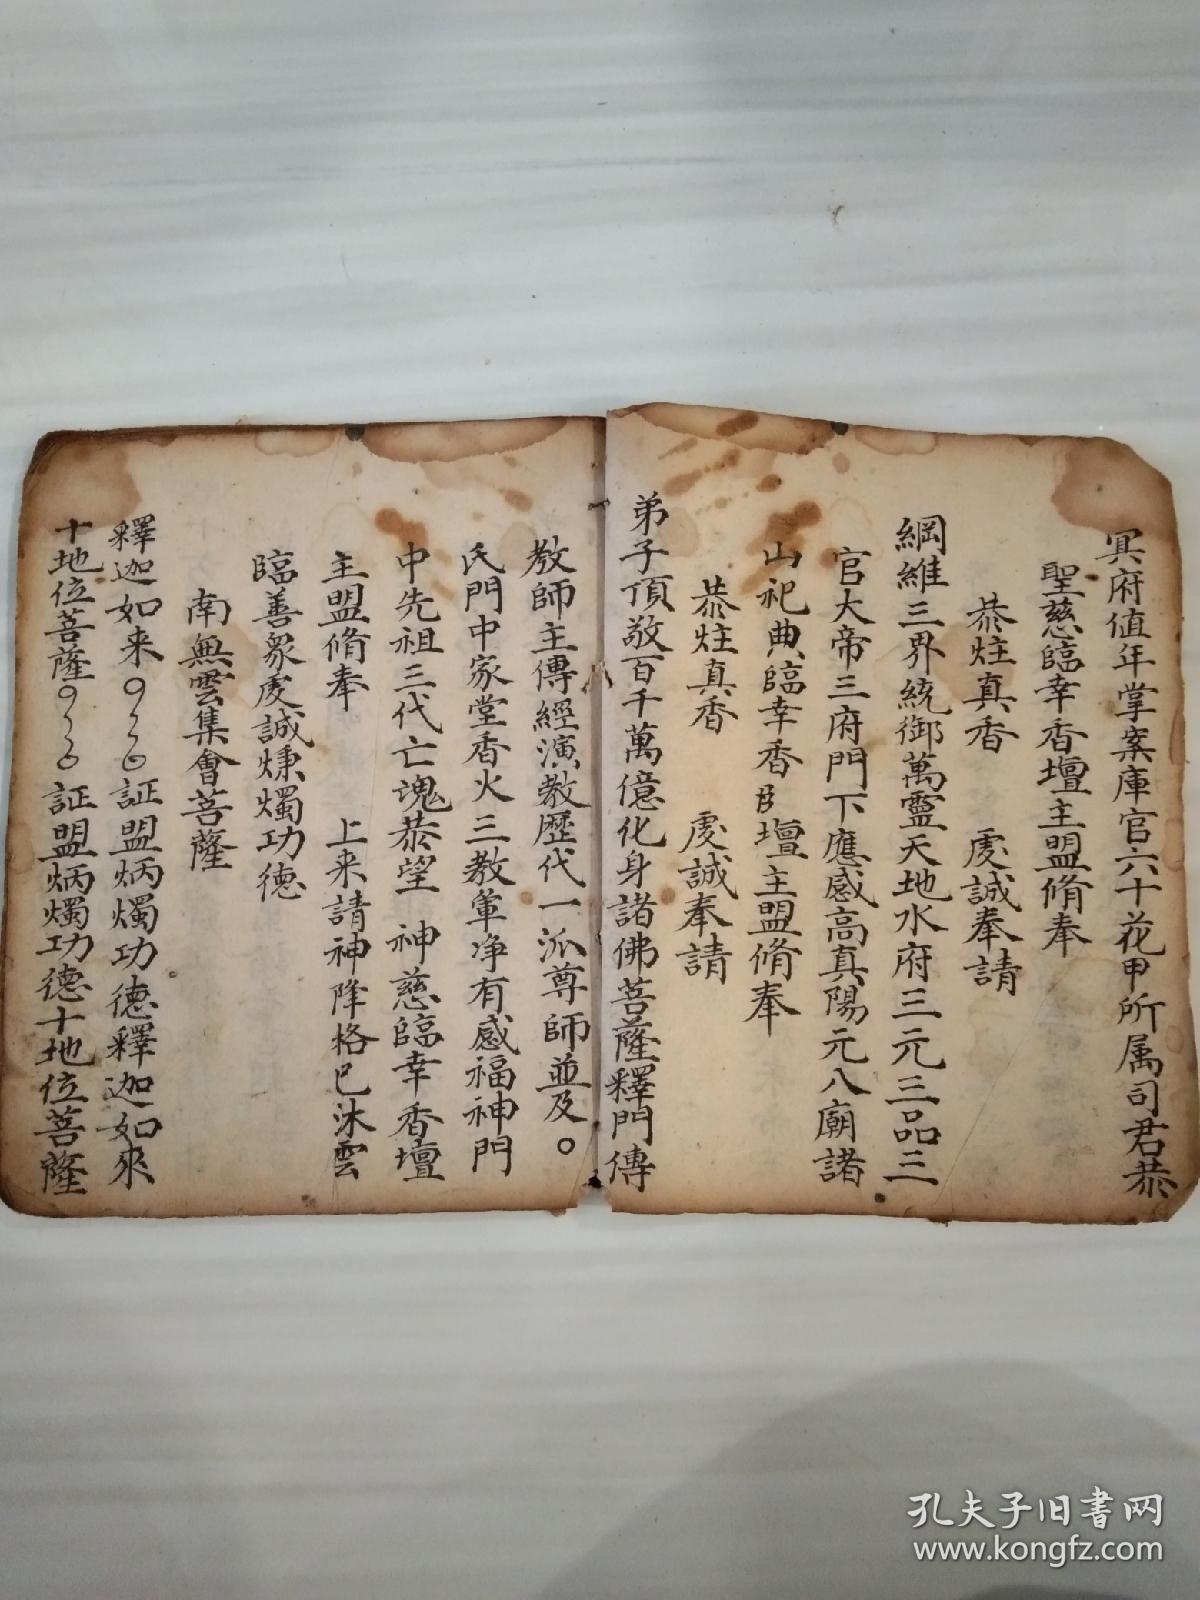 冥府值年掌案庫官六十花甲所属司君恭
聖慈臨幸香壇主盟脩奉
恭炷真香　虔誠奉請
綱維三界統御萬靈天地水府三元三品三
官大帝三府門下應感高真陽元八廟諸
山祀典臨幸香壇主盟脩奉
恭炷真香　虔誠奉請
弟子頂敬百千萬億化身諸佛菩薩釋門傳
教師主傳經演教歷代一派尊師並及。
氏門中家堂香火三教葷净有感福神門
中先祖三代亡魂恭望　神慈臨幸香壇
主盟脩奉　上来請神降格已沐雲
臨善衆虔誠煉燭功德
南無雲集會菩薩
釋迦如来　証盟炳燭功德釋迦如來
十地位菩薩　証盟炳燭功德十地位菩薩
孔夫子旧书网
www.kongfz.com